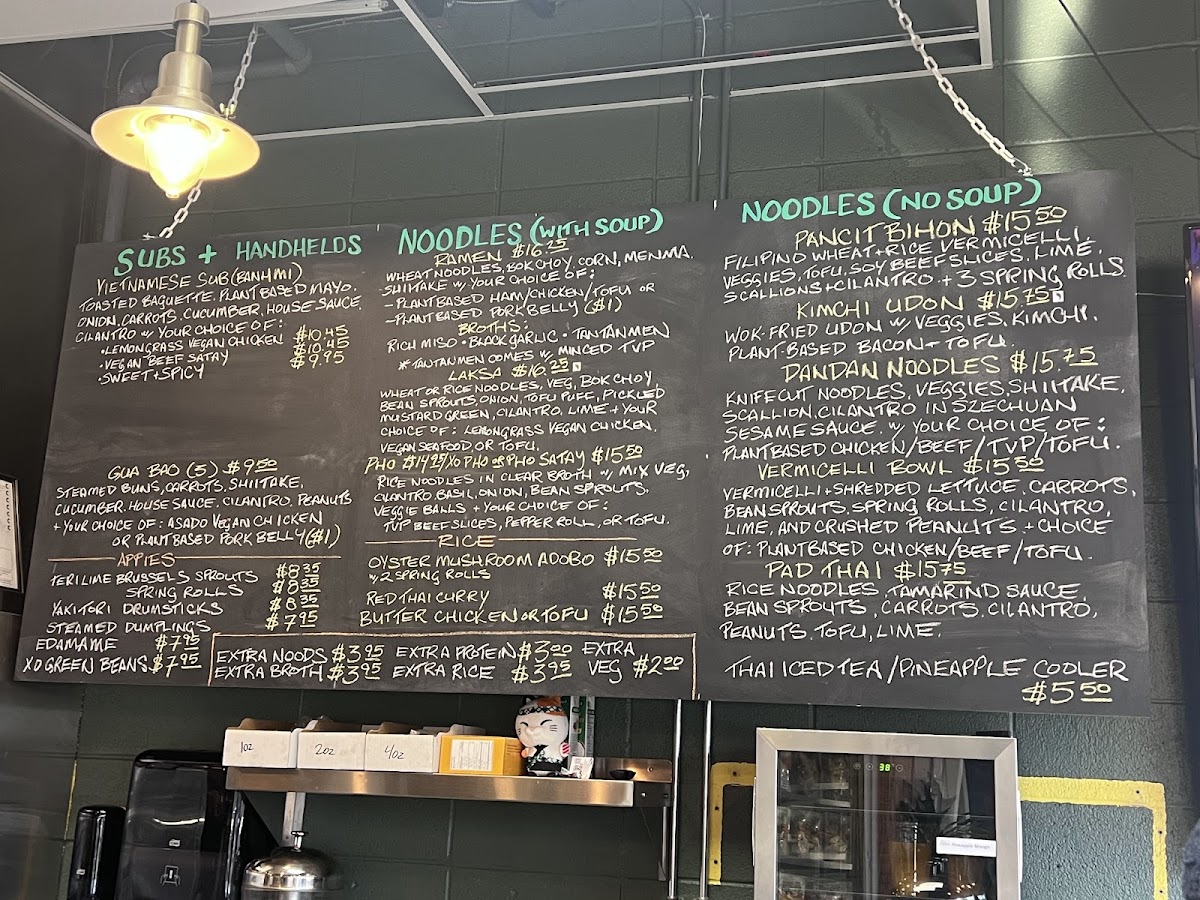 SUBS + HANDHELDS
VIETNAMESE SUB (BANH MI)
TOASTED BAGUETTE, PLANT BASED MAYO,
ONION, CARROTS, CUCUMBER, HOUSE SAUCE,
CILANTRO W/ YOUR CHOICE OF:
• LEMONGRASS VEGAN CHICKEN $10.45
• VEGAN BEEF SATAY $10.45
• SWEET + SPICY $9.95
GUA BAO (3) $9.50
STEAMED BUNS, CARROTS, SHIITAKE,
CUCUMBER, HOUSE SAUCE, CILANTRO, PEANUTS
+ YOUR CHOICE OF: ASADO VEGAN CHICKEN
OR PLANT BASED PORK BELLY ($1)
APPIES
TERI LIME BRUSSELS SPROUTS $8.35
SPRING ROLLS $8.35
YAKITORI DRUMSTICKS $8.35
STEAMED DUMPLINGS $7.95
EDAMAME $7.95
XO GREEN BEANS $7.95
NOODLES (WITH SOUP)
RAMEN $16.25
WHEAT NOODLES, BOK CHOY, CORN, MENMA,
SHIITAKE W/ YOUR CHOICE OF:
- PLANT BASED HAM/CHICKEN/TOFU OR
- PLANT BASED PORK BELLY ($1)
BROTHS:
RICH MISO • BLACK GARLIC • TANTANMEN
* TANTANMEN COMES W/ MINCED TVP
LAKSA $16.25
WHEAT OR RICE NOODLES, VEG, BOK CHOY,
BEAN SPROUTS, ONION, TOFU PUFF, PICKLED
MUSTARD GREEN, CILANTRO, LIME + YOUR
CHOICE OF: LEMONGRASS VEGAN CHICKEN,
VEGAN SEAFOOD OR TOFU.
PHO $14.25/XO PHO OR PHO SATAY $15.50
RICE NOODLES IN CLEAR BROTH W/ MIX VEG,
CILANTRO, BASIL, ONION, BEAN SPROUTS,
VEGGIE BALLS + YOUR CHOICE OF:
TVP BEEF SLICES, PEPPER ROLL, OR TOFU.
RICE
OYSTER MUSHROOM ADOBO $15.50
W/ 2 SPRING ROLLS
RED THAI CURRY $15.50
BUTTER CHICKEN OR TOFU $15.50
EXTRA NOODS $3.95 EXTRA PROTEIN $3.00 EXTRA
EXTRA BROTH $3.95 EXTRA RICE $3.95 VEG $2.00
NOODLES (NO SOUP)
PANCIT BIHON $15.50
FILIPINO WHEAT + RICE VERMICELLI,
VEGGIES, TOFU, SOY BEEF SLICES, LIME,
SCALLIONS + CILANTRO. + 3 SPRING ROLLS
KIMCHI UDON $15.75
WOK-FRIED UDON W/ VEGGIES, KIMCHI,
PLANT-BASED BACON + TOFU.
DANDAN NOODLES $15.75
KNIFE CUT NOODLES, VEGGIES, SHIITAKE,
SCALLION, CILANTRO IN SZECHUAN
SESAME SAUCE W/ YOUR CHOICE OF:
PLANT BASED CHICKEN/BEEF/TVP/TOFU.
VERMICELLI BOWL $15.50
VERMICELLI + SHREDDED LETTUCE, CARROTS,
BEAN SPROUTS, SPRING ROLLS, CILANTRO,
LIME, AND CRUSHED PEANUTS + CHOICE
OF: PLANT BASED CHICKEN/BEEF/TOFU.
PAD THAI $15.75
RICE NOODLES, TAMARIND SAUCE,
BEAN SPROUTS, CARROTS, CILANTRO,
PEANUTS, TOFU, LIME.
THAI ICED TEA/PINEAPPLE COOLER
$5.50
1oz
2oz
4oz
38
Tork